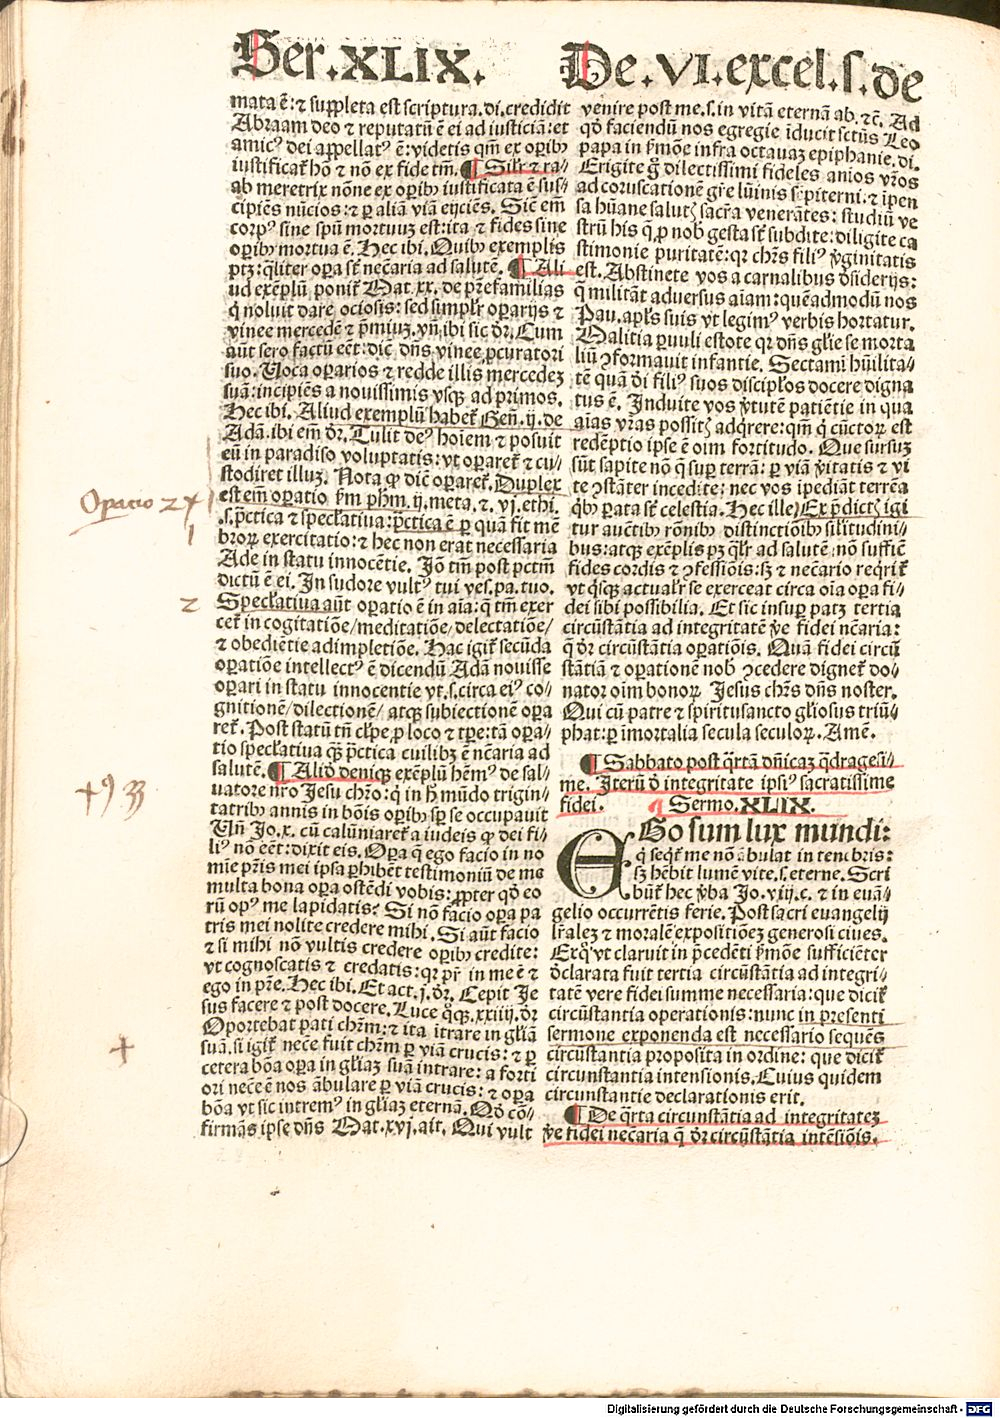 Ser. XLIX.
De. VI. excel. s. de
mata ē: ⁊ suppleta est scriptura. di. credidit
Abraam deo ⁊ reputatū ē ei ad iusticiā: et
amicꝰ dei appellatꝰ ē: videtis qm̄ ex oꝑibꝫ
iustificat᷑ hō ⁊ nō ex fide tm̄. ¶ Silr̄ ⁊ ra-
ab meretrix nōne ex oꝑibꝫ iustificata ē sus-
cipiēs nūcios: ⁊ ꝑ aliā viā eijciēs. Sic̄ em̄
corpꝰ sine spū mortuuꝫ est: ita ⁊ fides sine
oꝑibꝫ mortua ē. Hec ibi. Quibꝫ exemplis
ptꝫ: qͣliter oꝑa st̄ nec̄aria ad salutē. ¶ Ali
ud exēplū ponit᷑ Mat. xx. de pr̄efamilias
q̇ noluit dare ociosis: sed simplr̄ oꝑarijs ⁊
vinee mercedē ⁊ p̄miuꝫ. vn̄ ibi sic dr̄. Cum
aūt sero factū eēt: dic̄ dn̄s vinee ꝓcuratori
suo. Uoca oꝑarios ⁊ redde illis mercedeꝫ
suā: incipiēs a nouissimis vsqꝫ ad primos.
Hec ibi. Aliud exemplū habet᷑ Gen̄. ij. de
Adā. ibi em̄ dr̄. Tulit deꝰ hoiem ⁊ posuit
eū in paradiso voluptatis: vt oꝑaret᷑ ⁊ cu-
stodiret illuꝫ. Nota ꝙ dic̄ oꝑaret᷑. Duplex
est em̄ oꝑatio ẜm phm̄. ij. meta. ⁊. vj. ethi.
.s. pͣctica ⁊ specl̄atiua: pͣctica ē ꝑ quā fit mē
broꝝ exercitatio: ⁊ hec non erat necessaria
Ade in statu innocētie. Jō tm̄ post pctm̄
dictū ē ei. Jn sudore vultꝰ tui ves. pa. tuo.
Specl̄atiua aūt oꝑatio ē in aīa: q̄ tm̄ exer
cet᷑ in cogitatiōe/meditatiōe/delectatiōe/
⁊ obediētie adimpletiōe. Hac igit᷑ secūda
oꝑatiōe intellectꝰ ē dicendū Adā nouisse
oꝑari in statu innocentie vt. s. circa eiꝰ co-
gnitionē/dilectionē/ atqꝫ subiectionē oꝑa
ret᷑. Post statū tn̄ cl̄pe ꝓ loco ⁊ tꝑe: tā oꝑa-
tio specl̄atiua qͣꝫ pͣctica cuilibꝫ ē nec̄aria ad
salutē. ¶ Aliḋ deniqꝫ exēplū hēmꝰ de sal-
uatore nr̄o Jesu chr̄o: q̇ in ħ mūdo trigin-
tatribꝫ annis in bōis oꝑibꝫ sꝑ se occupauit
Un̄ Jo. x. cū calūniaret᷑ a iudeis ꝙ dei fi-
liꝰ nō eēt: dixit eis. Oꝑa q̄ ego facio in no
mīe pr̄is mei ipsa ꝑhibēt testimoniū de me
multa bona oꝑa ostēdi vobis: ꝓpter qḋ eo
rū opꝰ me lapidatis? Si nō facio oꝑa pa
tris mei nolite credere mihi. Si aūt facio
⁊ si mihi nō vultis credere oꝑibꝫ credite:
vt cognoscatis ⁊ credatis: qꝛ pr̄ in me ē ⁊
ego in pr̄e. Hec ibi. Et act. j. dr̄. Cepit Je
sus facere ⁊ post docere. Luce qͦqꝫ. xxiiij. dr̄
Oportebat pati chr̄m: ⁊ ita ītrare in gl̄iā
suā. si igit᷑ necē fuit chr̄m ꝑ viā crucis: ⁊ ꝑ
cetera bōa oꝑa in gl̄iaꝫ suā intrare: a forti
ori necē ē nos ābulare ꝑ viā crucis: ⁊ oꝑa
bōa vt sic intremꝰ in gl̄iaꝫ eternā. Qḋ cō-
firmās ipse dn̄s Mat. xvj. ait. Qui vult
venire post me. s. in vitā eternā ab. ⁊c̄. Ad
qḋ faciendū nos egregie īducit sctūs Leo
papa in ẜmōe infra octauaꝫ epiphanie. di.
Erigite g̊ dilectissimi fideles aīos vr̄os
ad coruscationē gr̄e lūinis sꝑiterni: ⁊ īpen
sa hūane salutꝫ sacr̄a venerātes: studiū ve
strū his q̄ ꝓ nob gesta st̄ subdite: diligite ca
stimonie puritatē: qꝛ chr̄s filiꝰ v̇ginitatis
est. Abstinete vos a carnalibus ḋsiderijs:
q̄ militāt aduersus aīam: quēadmodū nos
Pau. apl̄s suis vt legimꝰ verbis hortatur.
Malitia ꝑuuli estote qꝛ dn̄s gl̄ie se morta
liū ꝯformauit infantie. Sectamī hūilita-
tē quā ḋi filiꝰ suos discipl̄os docere digna
tus ē. Jnduite vos v̇tutē patiētie in qua
aīas vr̄as possitꝫ adq̇rere: qm̄ q̇ cūctoꝝ est
redēptio ipse ē oīm fortitudo. Que sursuꝫ
sūt sapite nō q̄ suꝑ terrā: ꝑ viā v̇itatis ⁊ vi
te ꝯstāter incedite: nec vos īpediāt terrēa
q̇bꝫ ꝑata st̄ celestia. Hec ille. Ex p̄dictꝫ igi
tur auctībꝫ rōnibꝫ distinctiōibꝫ silitudini-
bus: atqꝫ exēplis pꝫ qͣlr̄ ad salutē nō sufficē
fides cordis ⁊ ꝯfessiōis: sꝫ ⁊ nec̄ario req̇rit᷑
vt q̇sqꝫ actualr̄ se exerceat circa oīa oꝑa fi-
dei sibi possibilia. Et sic insuꝑ patꝫ tertia
circūstātia ad integritatē v̇e fidei nec̄aria:
q̄ dr̄ circūstātia oꝑatiōis. Quā fidei circū
stātiā ⁊ oꝑationē nob ꝯcedere dignet᷑ do-
nator oīm bonoꝝ Jesus chr̄s dn̄s noster.
Qui cū patre ⁊ spiritusancto gl̄iosus triū-
phat: ꝑ īmortalia secula seculoꝝ. Amē.
¶ Sabbato post qͣrtā dn̄icaꝫ qͣdragesi-
me. Jterū ḋ integritate ipsiꝰ sacratissime
fidei. ¶ Sermo. XLIX.
EGo sum lux mundi:
q̇ seqt᷑ me nō ābulat in tenebris:
sꝫ hēbit lumē vite. s. eterne. Scri
būt᷑ hec v̇ba Jo. viij. c. ⁊ in euā-
gelio occurrētis ferie. Post sacri euangelij
lr̄aleꝫ ⁊ moralē expositiōeꝫ generosi ciues.
Exq̇ vt claruit in p̄cedēti ẜmōe sufficiēter
ḋclarata fuit tertia circūstātia ad integri-
tatē vere fidei summe necessaria: que dicit᷑
circūstantia operationis: nunc in presenti
sermone exponenda est necessario sequēs
circūstantia proposita in ordine: que dicit᷑
circunstantia intensionis. Cuius quidem
circunstantie declarationis erit.
¶ De qͣrta circunstātia ad integritateꝫ
v̇e fidei nec̄aria q̄ dr̄ circūstātia intēsiōis.
Operatio 2x
1
2
33
Digitalisierung gefördert durch die Deutsche Forschungsgemeinschaft - DFG